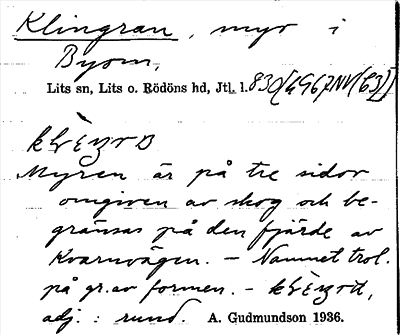 Klingran, myr i
Byom,
Lits sn, Lits o. Rödöns hd, Jtl. l. 830
Myren är på tre sidor
omgiven av skog och be-
gränsas på den fjärde av
Kvarnvägen. — Namnet trol.
på gr. av formen. —
adj.: rund. A. Gudmundson 1936.